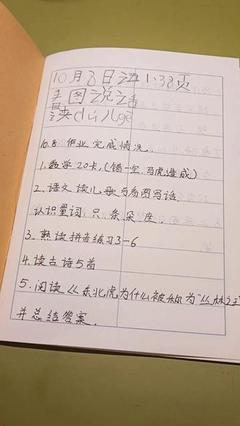 10月8日 语 1.38页
2 图说话
读dú儿gē
10.8 作业完成情况
1. 数学20卡,(错一空,马虎造成)
2. 语文 读儿歌 写看图写话
认识量词: 只 条 朵 座.
3. 熟读拼音练习3-6
4. 读古诗5首
5. 阅读《东北虎为什么被称为"山林之王
并总结答案.